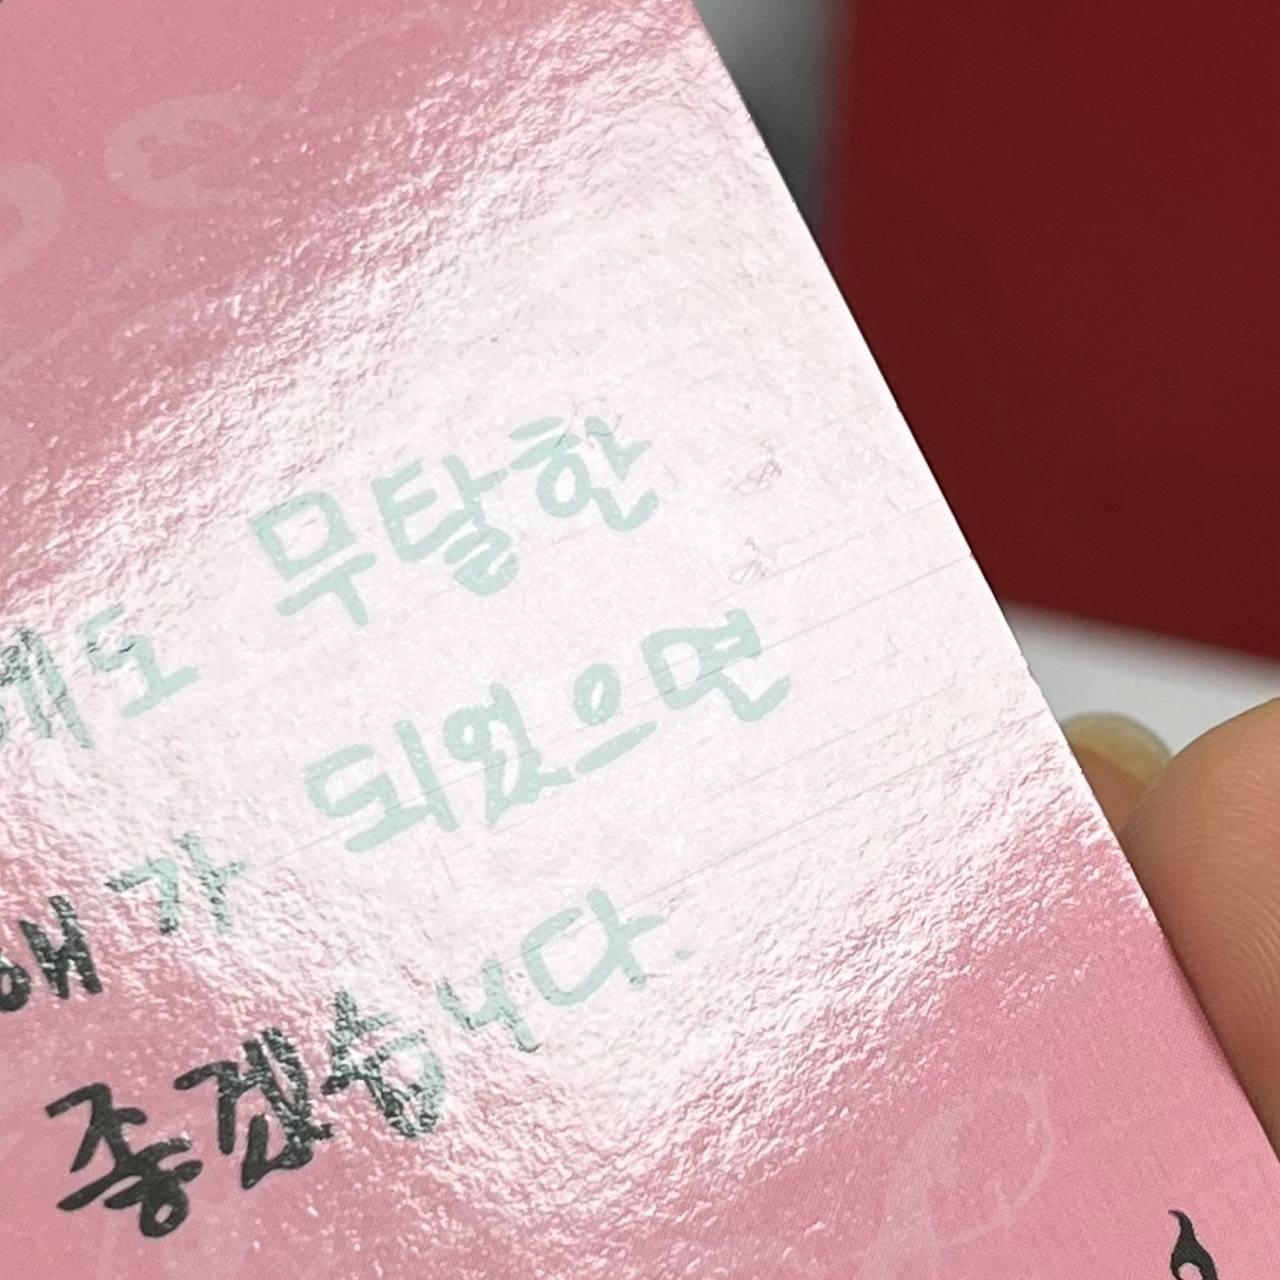 에도 무탈한
해가 되었으면
좋겠습니다.